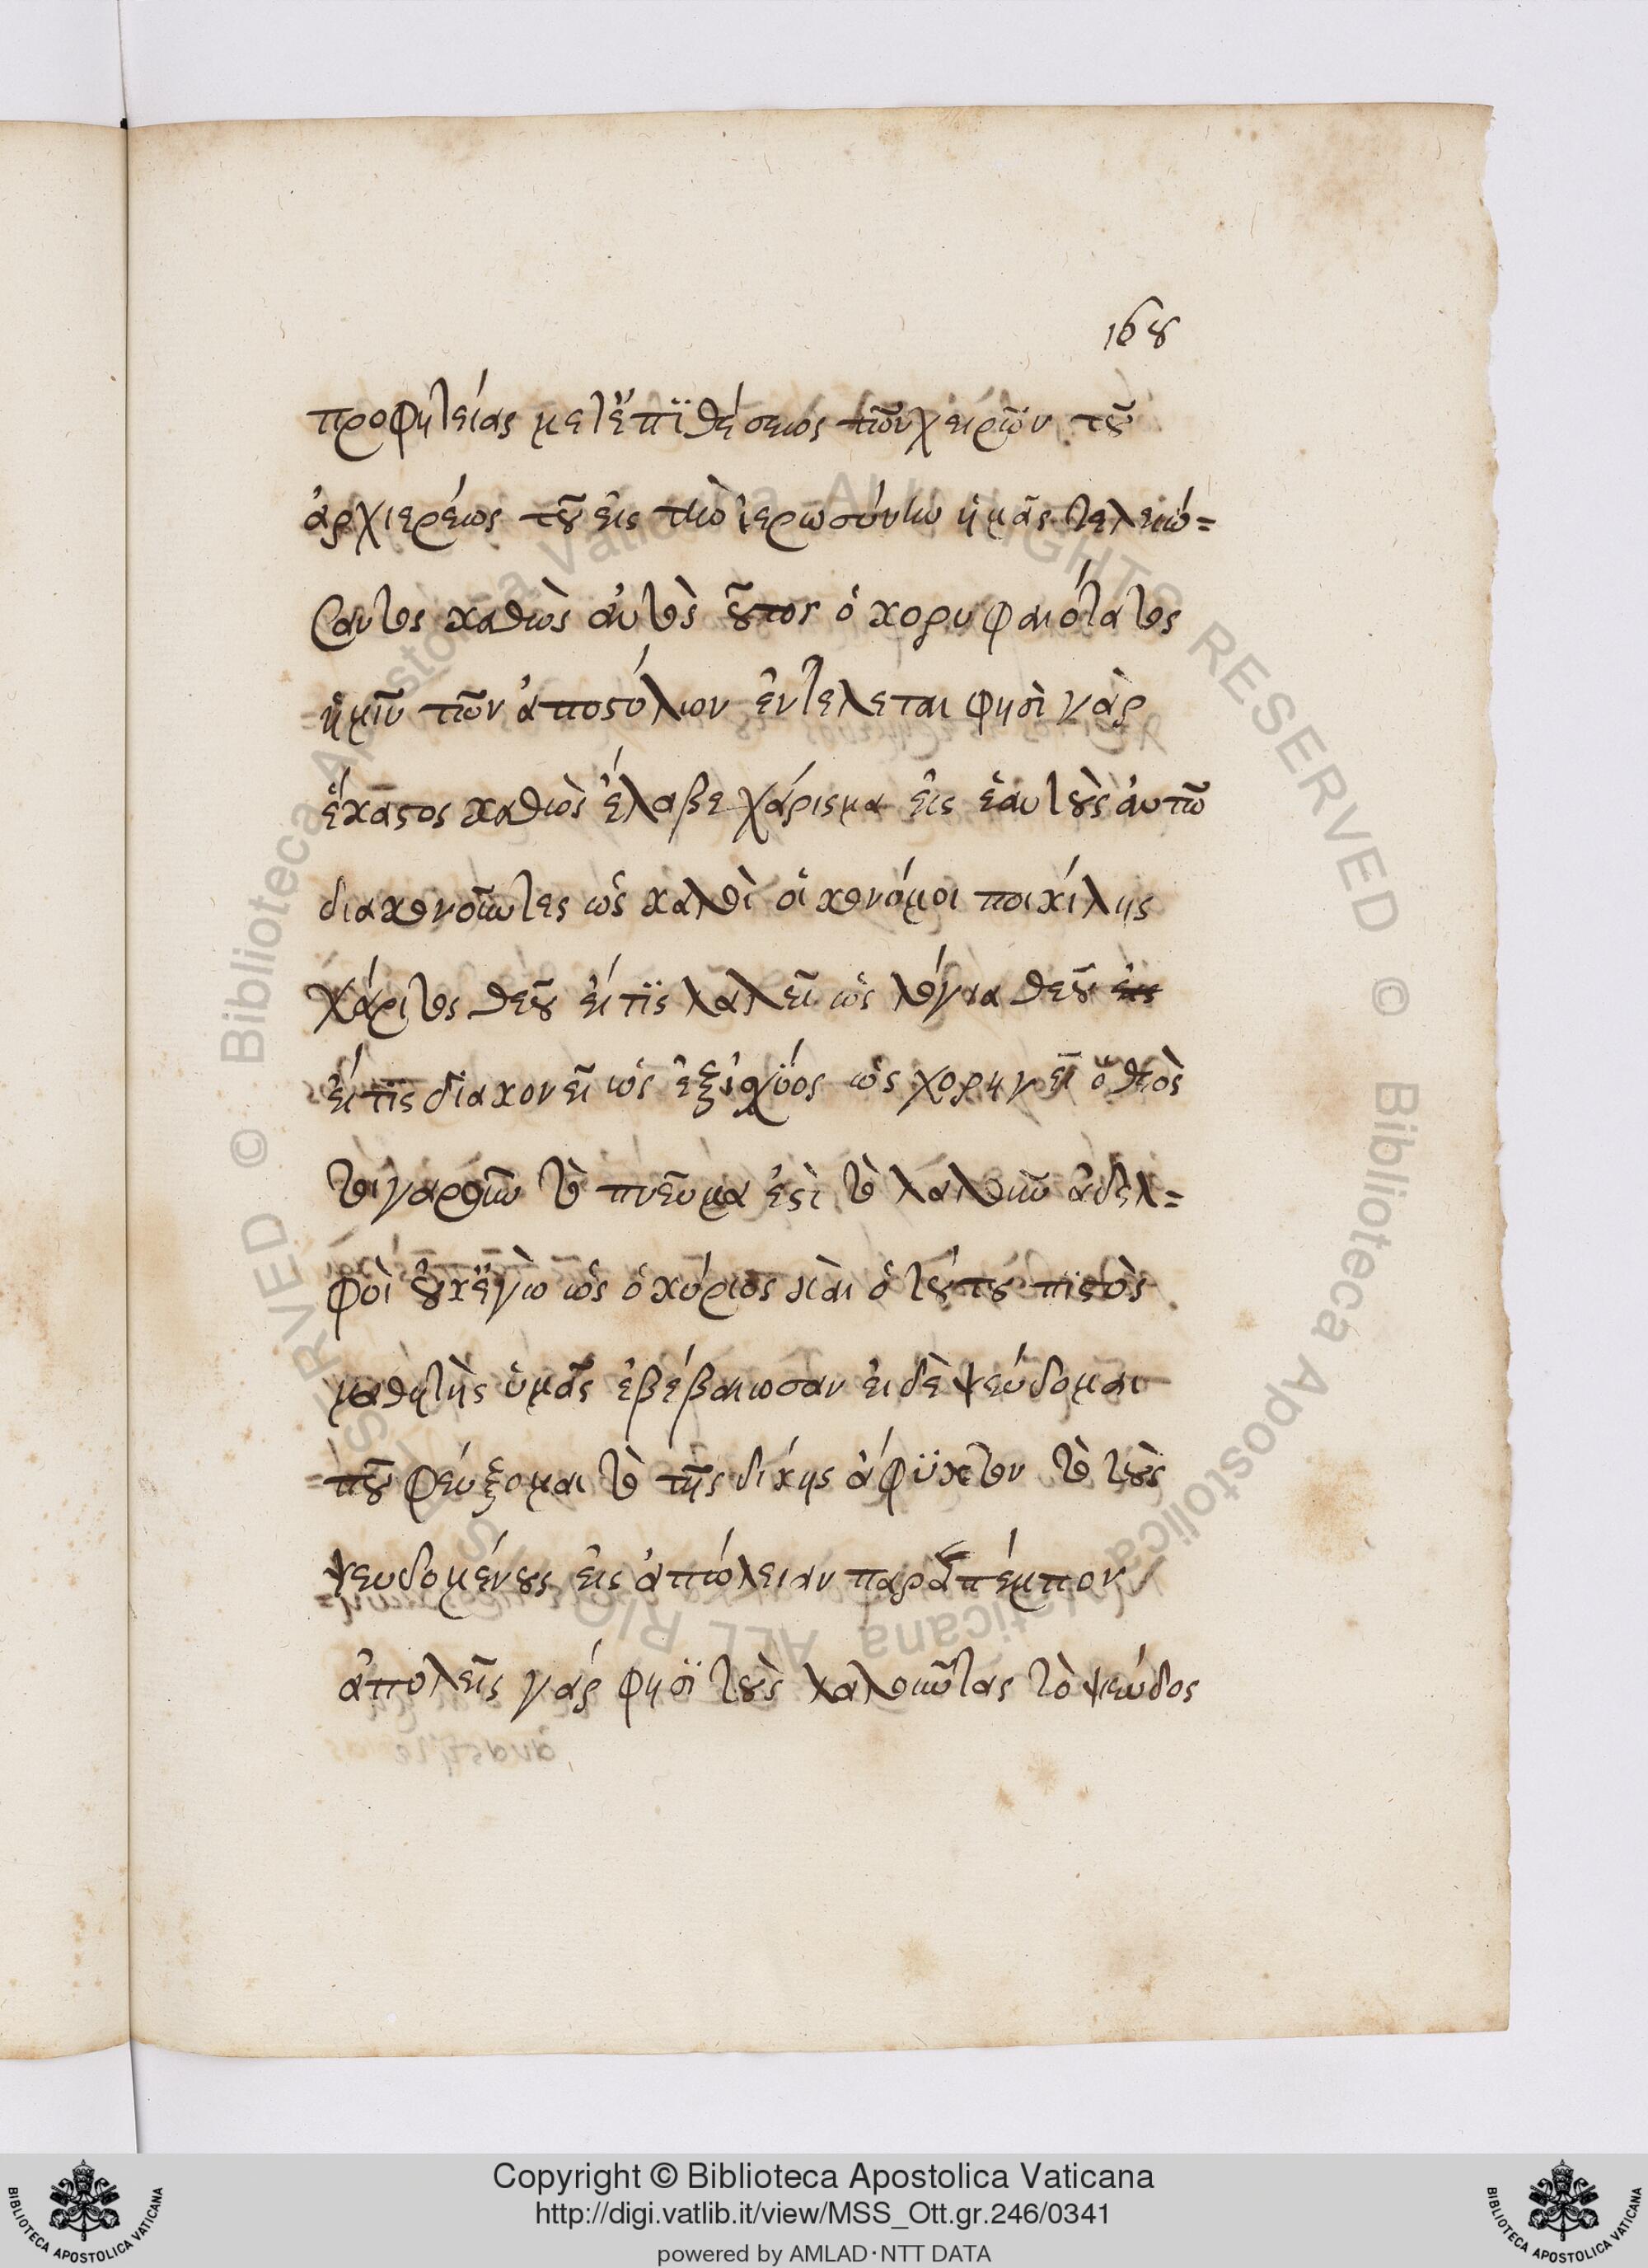 168
προφητείας μετἐπϊθέσεως τῶν χειρῶν τοῦ
ἀρχιερέως τοῦ εἰς τὴν ἱερωσύνην ἡμᾶς τελειώ=
σαντος καθὼς αὐτὸς οὗτος ὁ κορυφαιότατος
ἡμῖν τῶν ἀποστόλων ἐντέλεται φησὶ γὰρ
ἕκαστος καθὼς ἔλαβε χάρισμα εἰς ἑαυτοὺς ἀυτῶ
διακονοῦντες ὡς καλοὶ οἰκονόμοι ποικίλης
χάριτος θεοῦ εἴ τϊς λαλεῖ ὡς λόγια θεοῦ
εἴ τϊς διακονεῖ ὡς ἐξ ἰσχύος ὡς χορηγεῖ ὁ θεὸς
τοιγαροῦν τὸ πνεῦμα ἐστὶ τὸ λαλοῦν ἀδελ=
φοὶ οὐκ ἐγὼ ὡς ὁ κύριος καὶ ὁ τούτου πϊστὸς
μαθητὴς ὑμᾶς ἐβεβαίωσαν εἰ δὲ ψεύδομαι
ποῦ φεύξομαι τὸ τῆς δίκης ἄφϋκτον τὸ τοὺς
ψευδομένους εἰς ἀπώλειαν παραπέμπον
ἀπολεῖς γάρ φησϊ τοὺς λαλοῦντας τὸ ψεύδος
Copyright © Biblioteca Apostolica Vaticana
http://digi.vatlib.it/view/MSS_Ott.gr.246/0341
powered by AMLAD·NTT DATA
BIBLIOTECA APOSTOLICA VATICANA
BIBLIOTECA APOSTOLICA VATICANA